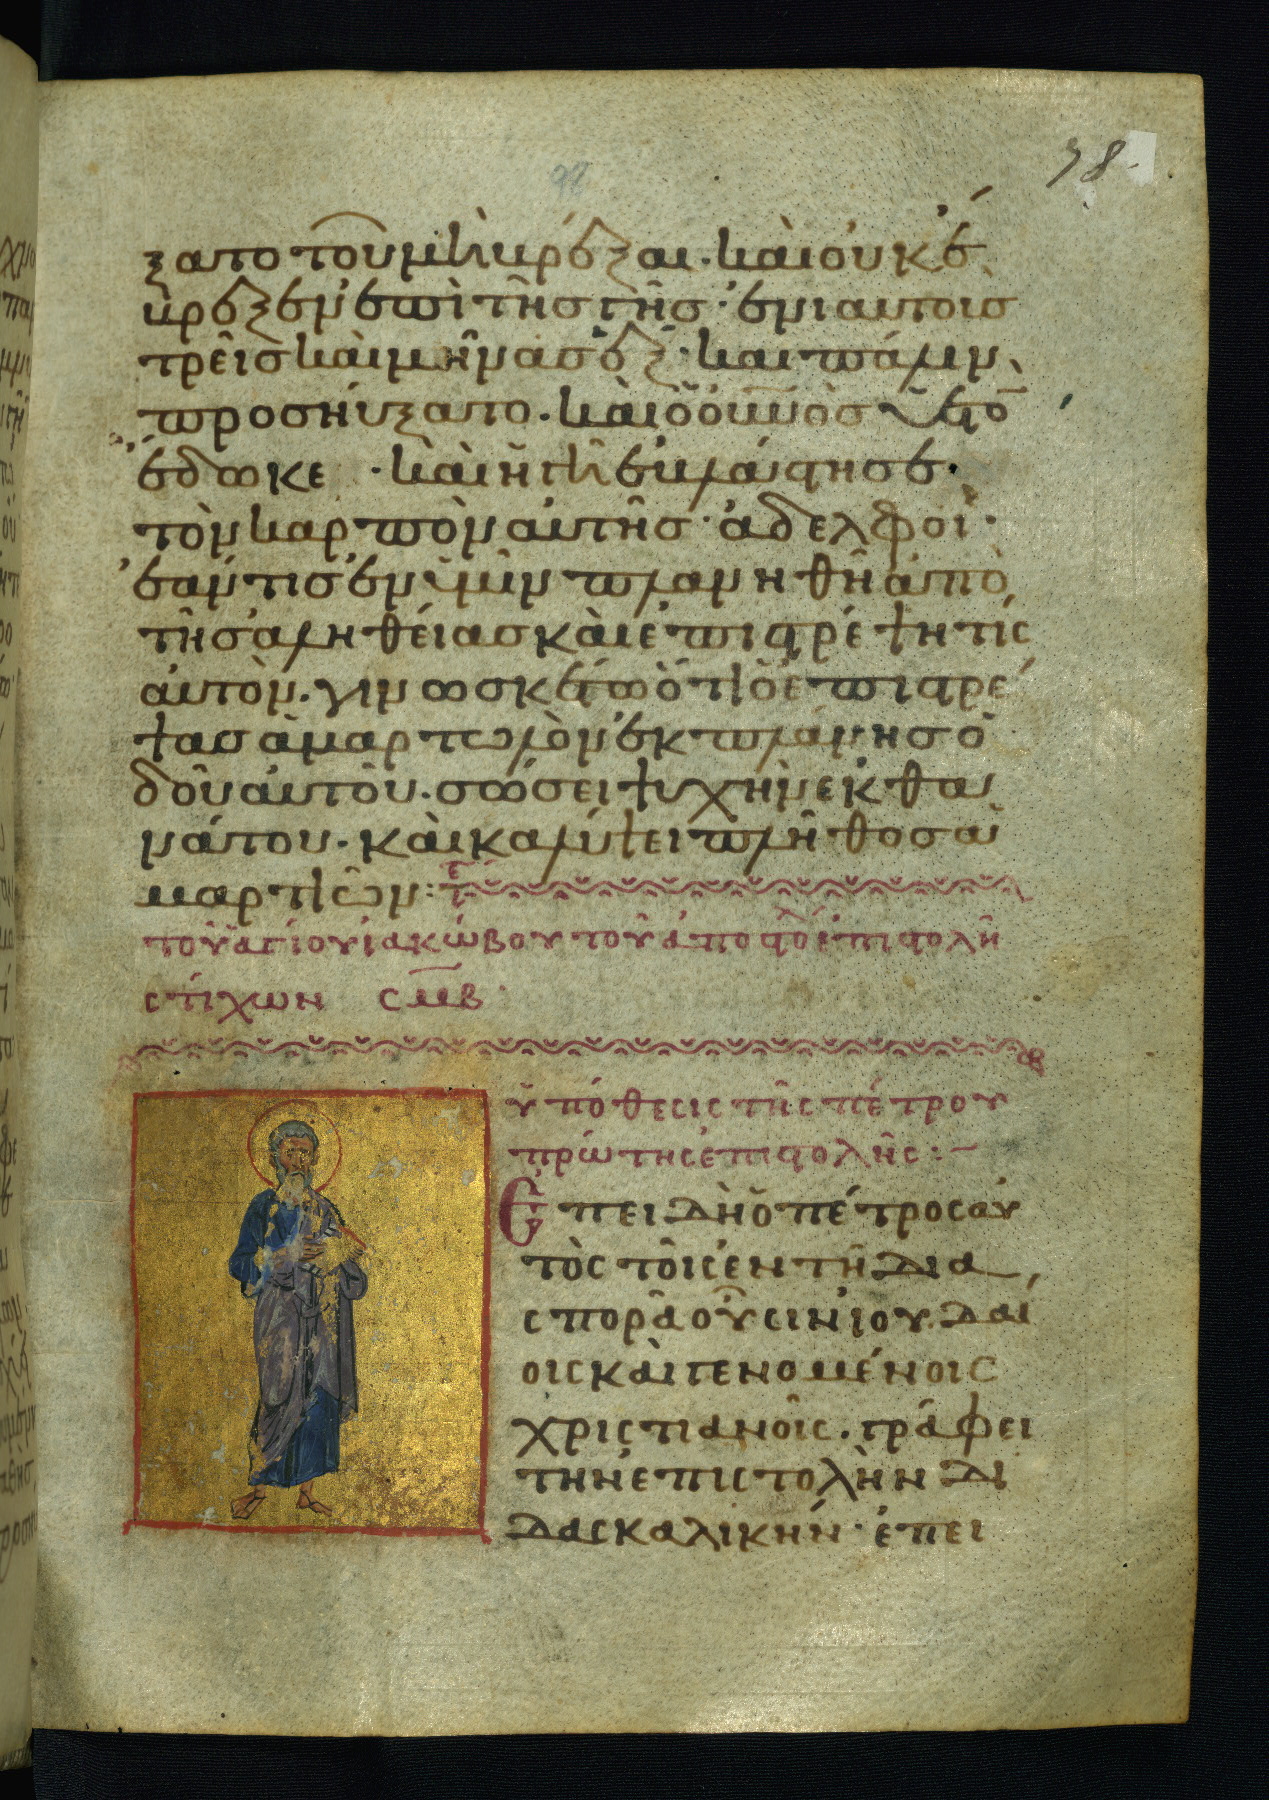 78.
ξατο τοῦ μὴ βρέξαι· καὶ οὐκ ἔ
βρεξεν ἐπὶ τῆς γῆς· ἐνιαυτοὺσ
τρεῖσ καὶ μῆνασ ἕξ· καὶ πάλιν
προσηύξατο· καὶ ὁ οὐνοσ ὑετὸ
ἔδωκε· καὶ ἡ γῆ ἐβλάστησε·
τὸν καρπὸν αὐτῆσ· ἀδελφοί·
ἐάν τισ ἐν ὑμῖν πλανηθῆ ἀπὸ
τῆσ ἀληθείασ καὶ ἐπιστρέψη τίς
αὐτὸν· γινωσκέτω ὅτι ὁ ἐπιστρέ
ψασ ἁμαρτωλὸν ἐκ πλάνησ ὁ
δοῦ αὐτοῦ· σώσει ψυχὴν ἐκ θα
νάτου· καὶ καλύψει πλῆθοσ ἁ
μαρτιῶν: τε
τοῦ ἁγίου ἰακώβου τοῦ ἀποστόλ ἐπιστολὴ
στίχων σμβ
ὑπόθεσις τῆς πέτρου
πρώτης ἐπιστολῆς:
Ἐπειδὴ ὁ πέτρος αὐ
τὸς τοῖς ἐν τῆ δια
σπορᾶ οὖσιν ἰουδαί
οις καὶ γενομένοις
χριστιανοῖς· γράφει
τὴν ἐπιστολὴν δι
δασκαλικήν· ἐπει